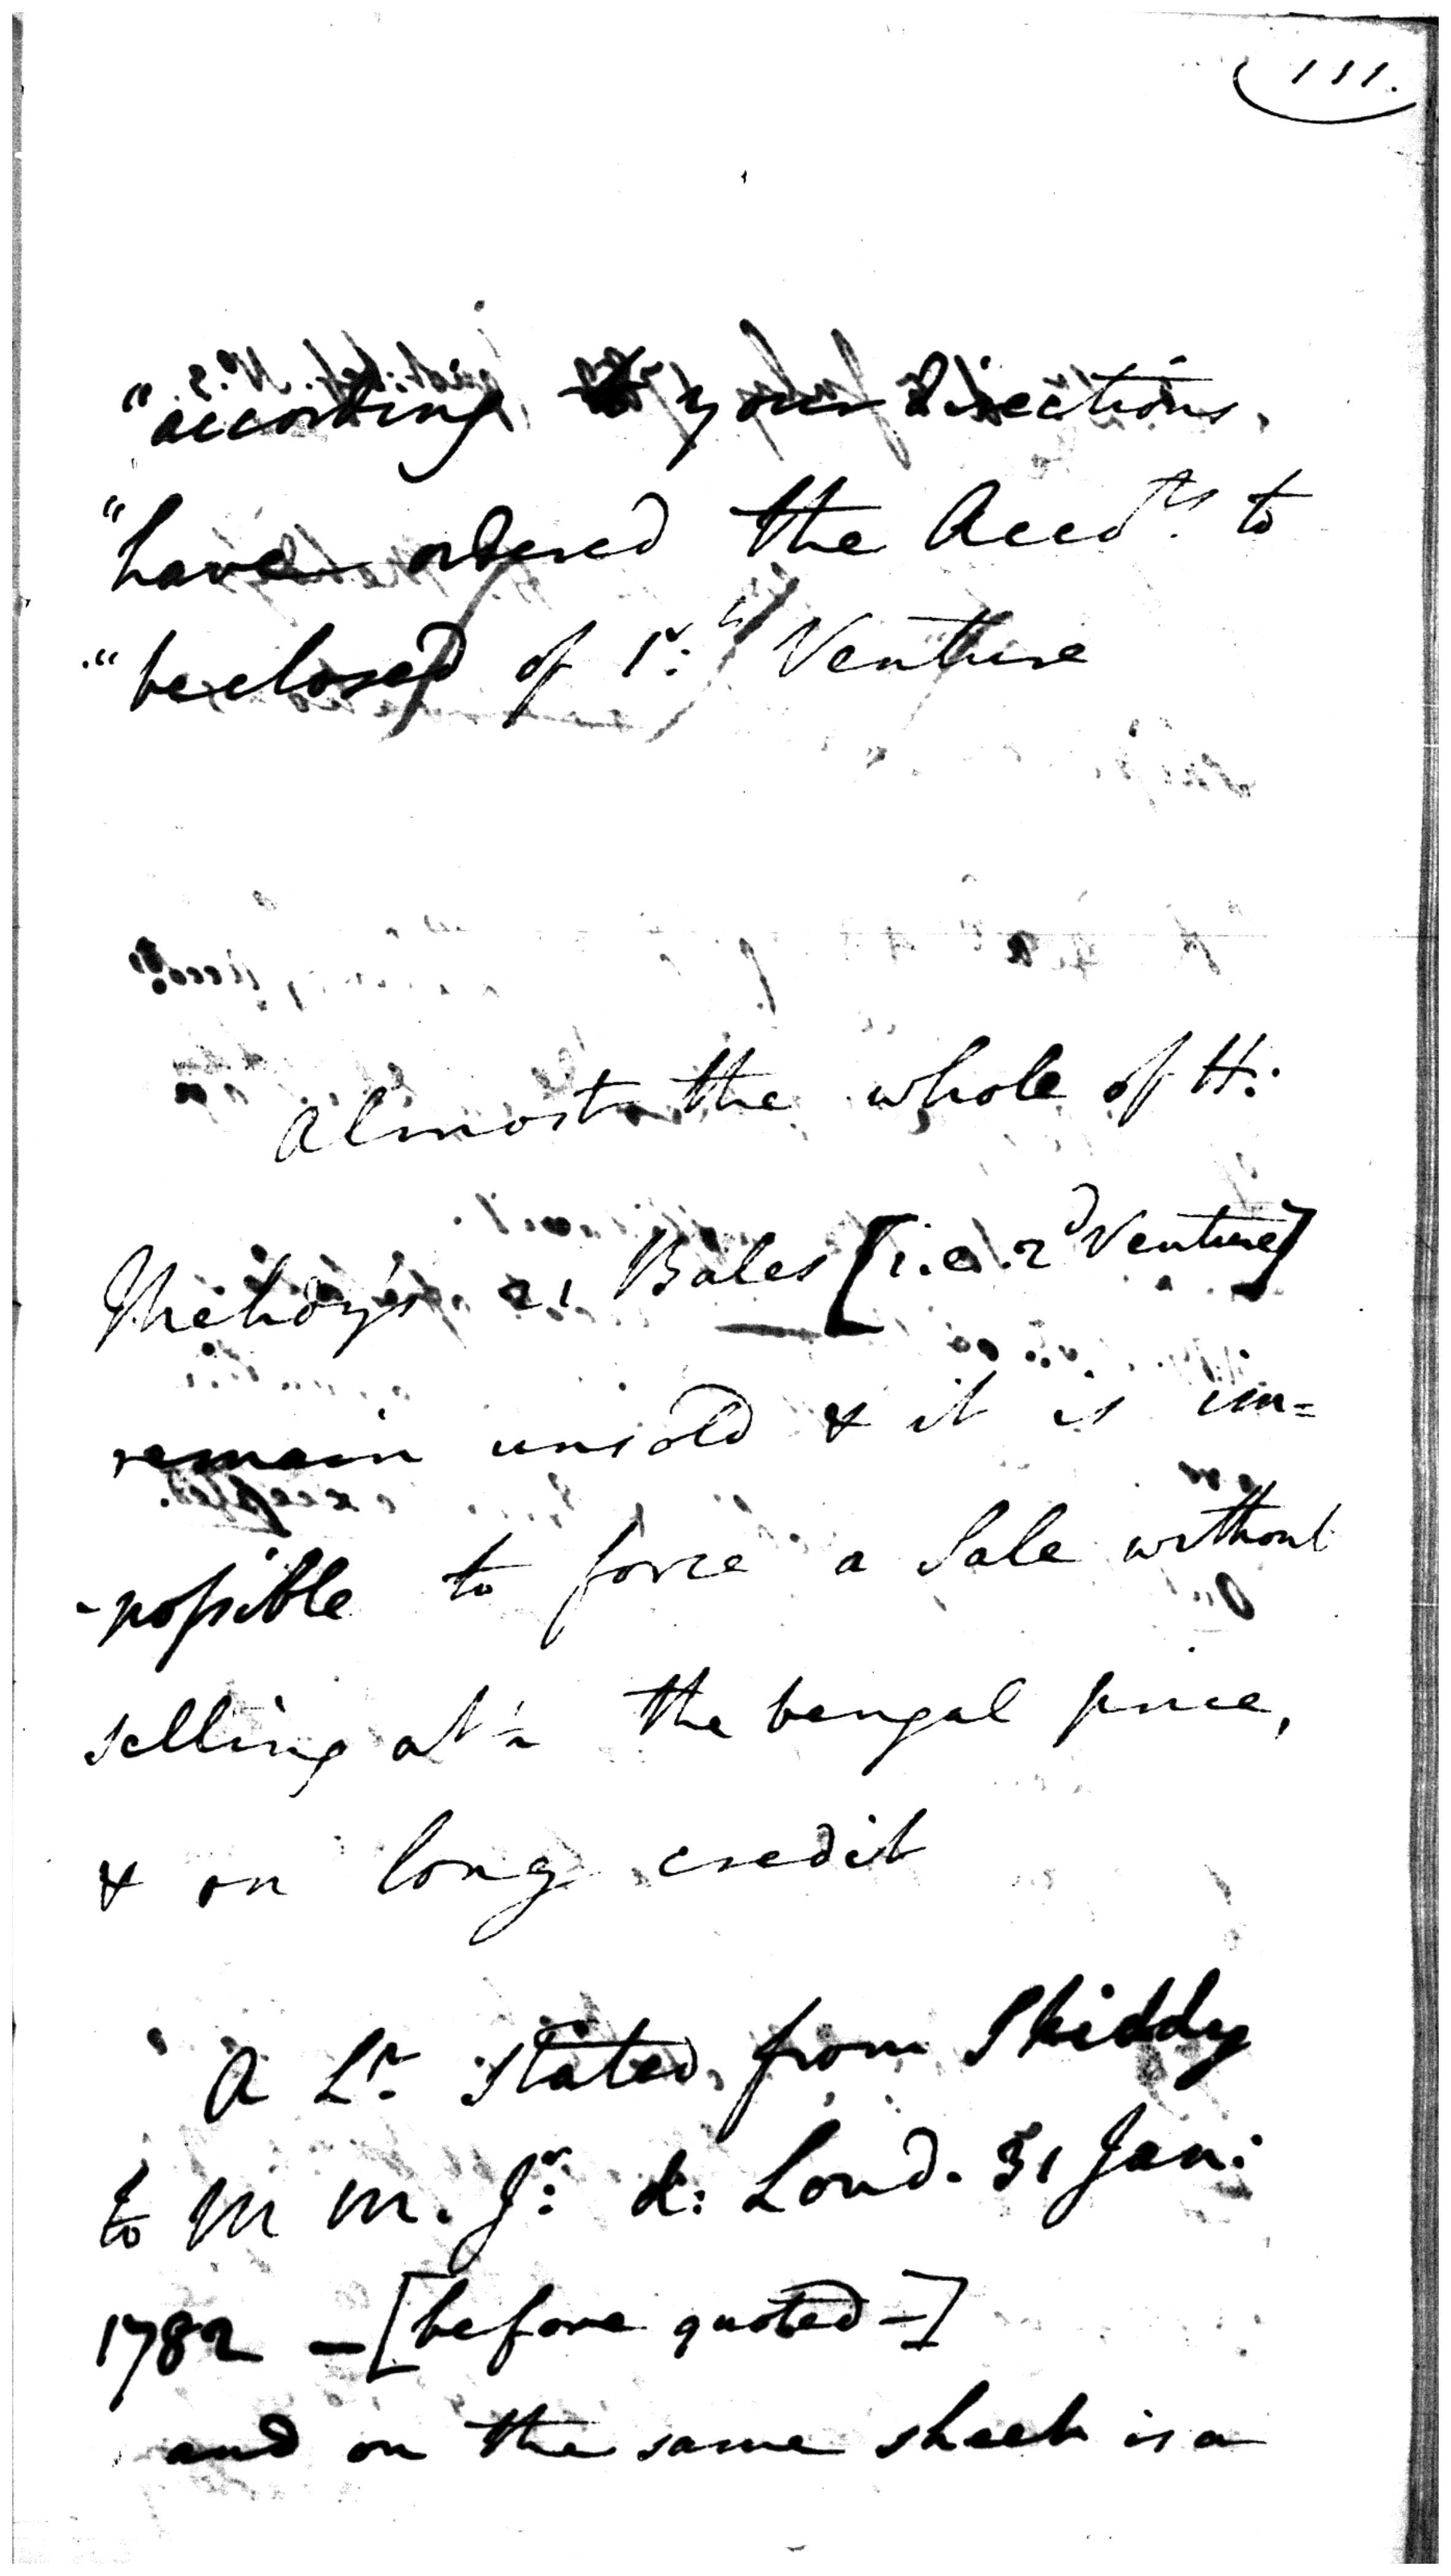 111.
"according to your directions,
"have ordered the Accots. to
"be closed of 1r: Venture
almost the whole of H:
21 Bales [i.e. 2d Venture]
remain unsold & it is im=
-possible to force a Sale without
selling at ½ the bengal price,
& on long credit
A Lr. stated from Skiddy
to M M. Jr: d: Lond. 31 Jan:
1782 – [before quoted –]
and on the same sheet is a